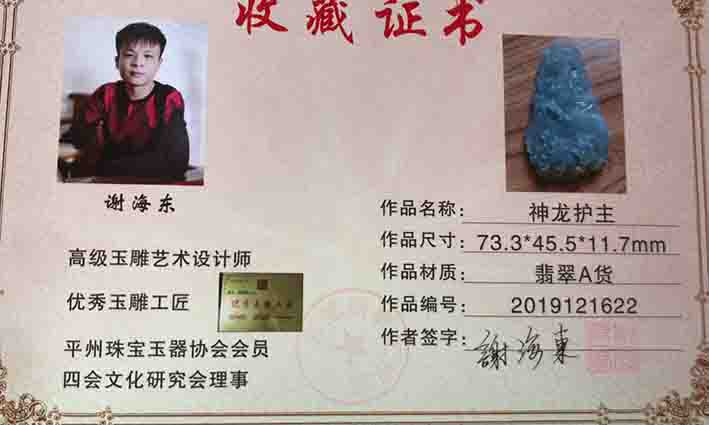 收藏证书
谢海东
高级玉雕艺术设计师
优秀玉雕工匠
平州珠宝玉器协会会员
四会文化研究会理事
作品名称：神龙护主
作品尺寸：73.3*45.5*11.7mm
作品材质：翡翠A货
作品编号：2019121622
作者签字：謝海東